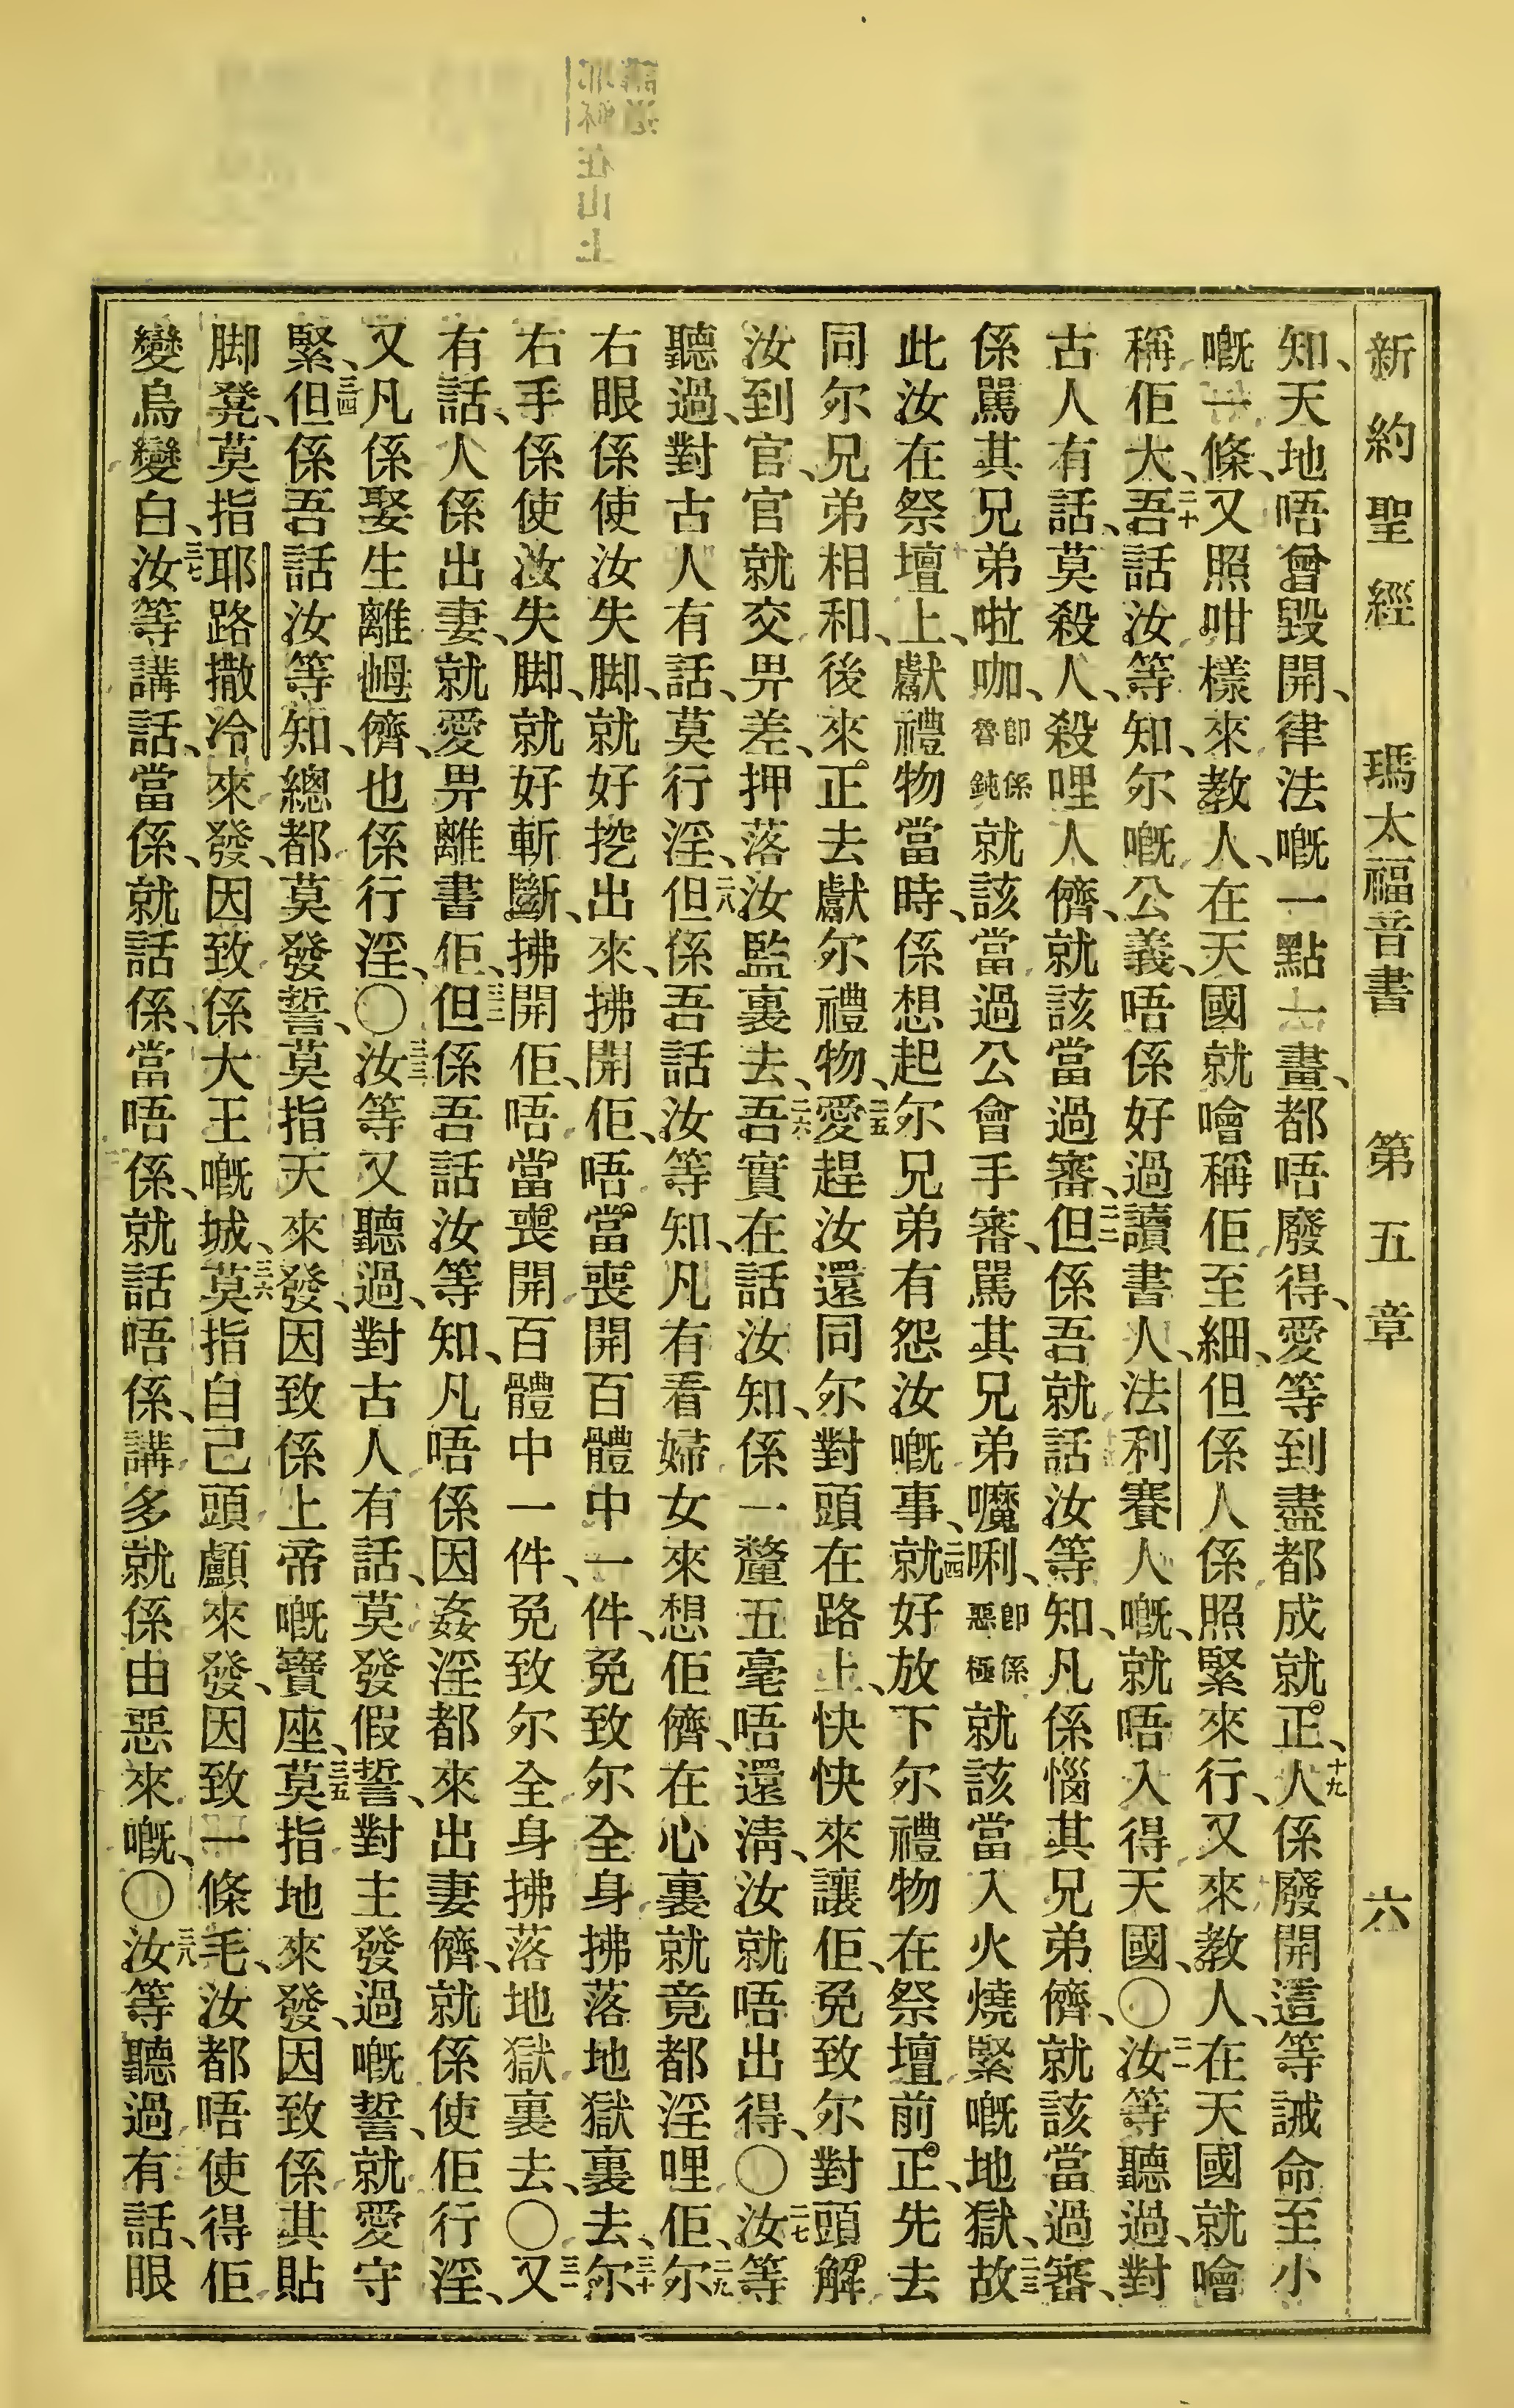 新約聖經 瑪太福音書 第五章 六
知、天地唔曾毀開、律法嘅一點一畫、都唔廢得、愛等到盡都成就正、十九人係廢開這等誡命至小
嘅一條、又照咁樣來教人、在天國就噲稱佢至細、但係人係照緊來行、又來教人、在天國就噲
稱佢大、二十吾話汝等知、尔嘅公義、唔係好過讀書人、法利賽人嘅、就唔入得天國、〇二一汝等聽過、對
古人有話、莫殺人、殺哩人儕、就該當過審、二二但係吾就話汝等知、凡係惱其兄弟儕、就該當過審、
係駡其兄弟啦咖、即係魯鈍就該當過公會手審、駡其兄弟嚰唎、即係惡極就該當入火燒緊嘅地獄、二三故
此汝在祭壇上、獻禮物當時、係想起尔兄弟有怨汝嘅事、二四就好放下尔禮物在祭壇前、正先去
同尔兄弟相和、後來正去獻尔禮物、二五愛趕汝還同尔對頭在路上、快快來讓佢、免致尔對頭解
汝到官、官就交畀差、押落汝監裏去、二六吾實在話汝知、係一釐五毫唔還淸、汝就唔出得、〇二七汝等
聽過、對古人有話、莫行淫、二八但係吾話汝等知、凡有看婦女來想佢儕、在心裏就竟都淫哩佢、二九尔
右眼係使汝失脚、就好挖出來、拂開佢、唔當喪開百體中一件、免致尔全身拂落地獄裏去、三十尔
右手係使汝失脚、就好斬斷、拂開佢、唔當喪開百體中一件、免致尔全身拂落地獄裏去、〇三一又
有話、人係出妻、就愛畀離書佢、三二但係吾話汝等知、凡唔係因姦淫都來出妻儕、就係使佢行淫、
又凡係娶生離乸儕、也係行淫、〇三三汝等又聽過、對古人有話、莫發假誓、對主發過嘅誓、就愛守
緊、三四但係吾話汝等知、總都莫發誓、莫指天來發、因致係上帝嘅寶座、三五莫指地來發、因致係其貼
脚凳、莫指耶路撒冷來發、因致係大王嘅城、三六莫指自己頭顱來發、因致一條毛、汝都唔使得佢
變烏變白、三七汝等講話、當係、就話係、當唔係、就話唔係、講多就係由惡來嘅、〇三八汝等聽過有話、眼